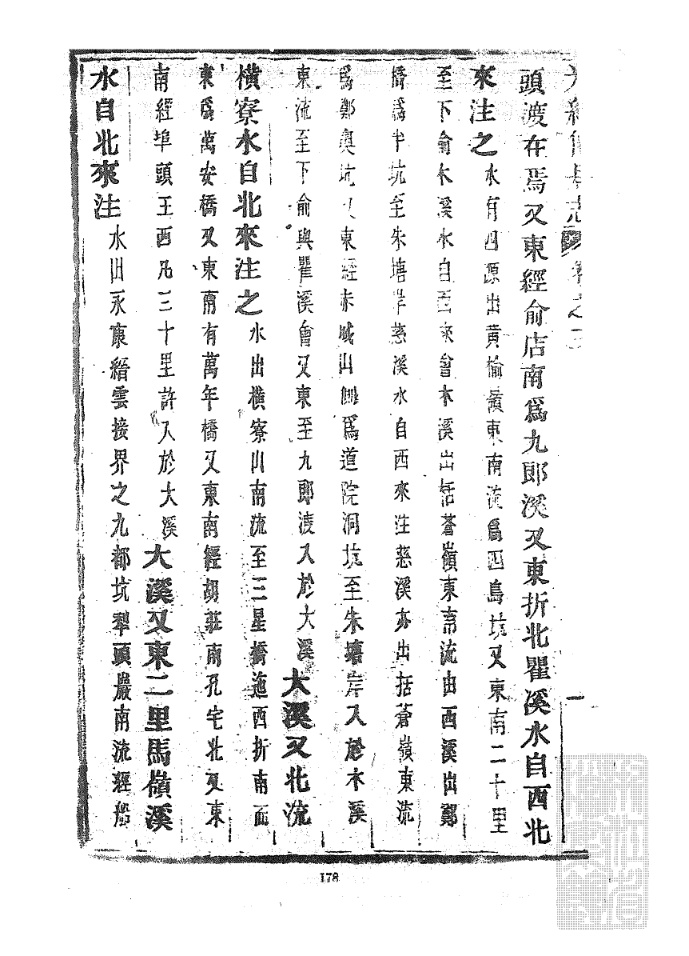 光緒仙居志 卷之二
頭渡在焉又東經俞店南爲九郎溪又東折北瞿溪水自西北
來注之水有四源出黃榆嶺東南流爲四島坑又東南二十里
至下俞木溪水自西來會木溪出括蒼嶺東南流由西溪出鄭
橋爲半坑至朱塘岸慈溪水自西來注慈溪亦出括蒼嶺東流
爲鄭奧坑又東經赤城山側爲道院洞坑至朱塘岸入於木溪
東流至下俞與瞿溪會又東至九郎渡入於大溪大溪又北流
橫寮水自北來注之水出橫寮山南流至三星橋迤西折南而
東爲萬安橋又東南有萬年橋又東南經胡莊南孔宅北又東
南經埠頭王西凡三十里許入於大溪大溪又東二里馬嶺溪
水自北來注水出永康縉雲接界之九都坑犁頭巖南流經船
178